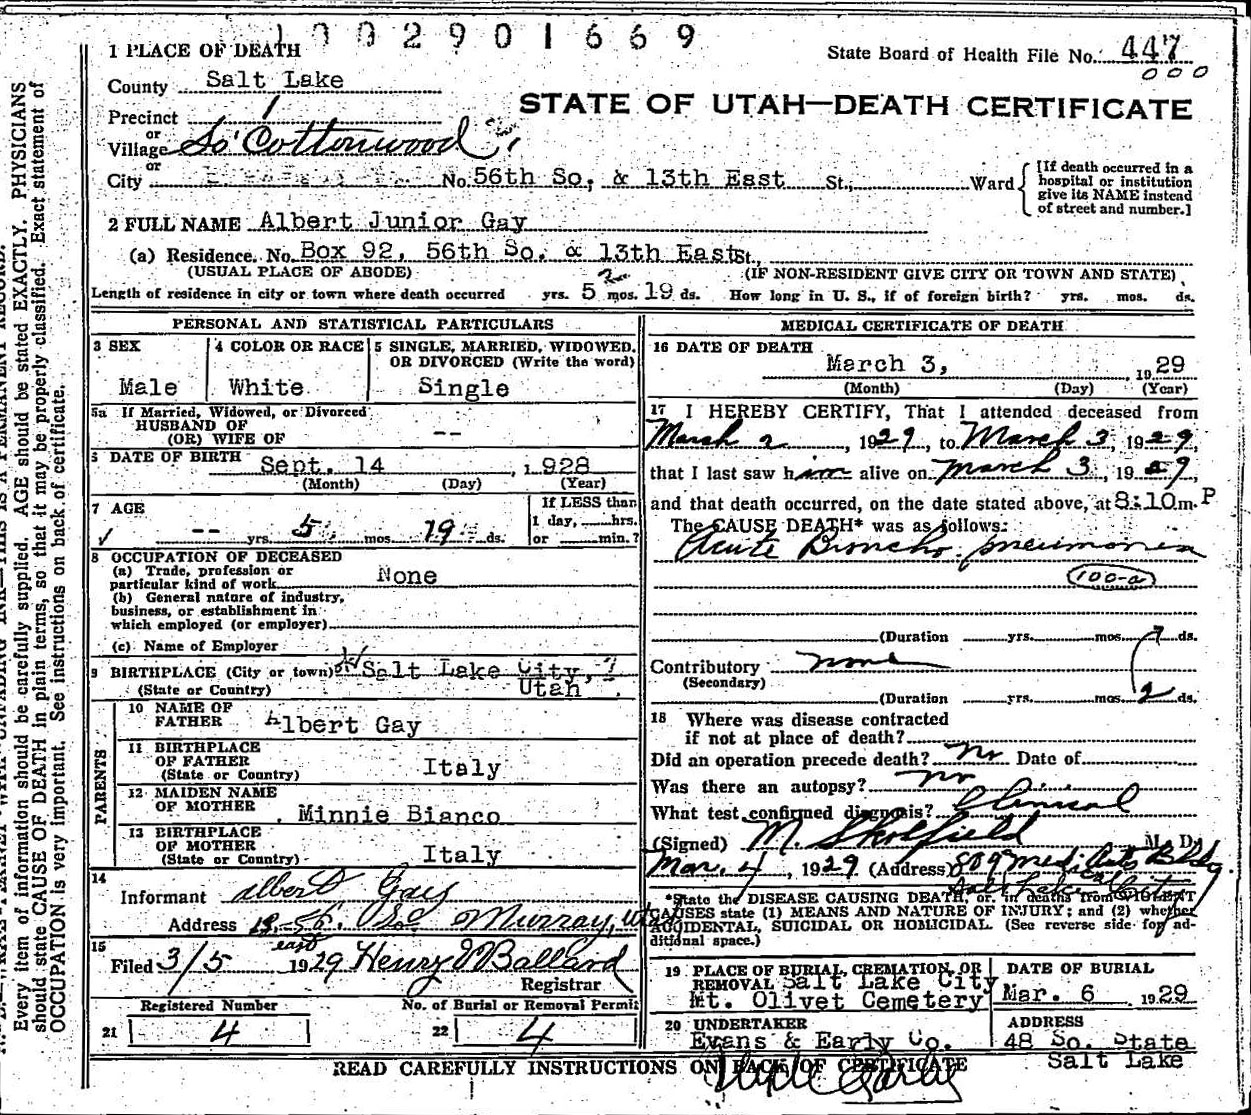 1002901669
1 PLACE OF DEATH
State Board of Health File No. 447
000
County Salt Lake
STATE OF UTAH—DEATH CERTIFICATE
Precinct 1
or
Village So Cottonwood
or
City No. 56th So, & 13th East St., Ward
[If death occurred in a
hospital or institution
give its NAME instead
of street and number.]
2 FULL NAME Albert Junior Gay
(a) Residence. No. Box 92, 56th So. & 13th East St.,
(USUAL PLACE OF ABODE) (IF NON-RESIDENT GIVE CITY OR TOWN AND STATE)
2
Length of residence in city or town where death occurred yrs. 5 mos. 19 ds. How long in U. S., if of foreign birth? yrs. mos. ds.
PERSONAL AND STATISTICAL PARTICULARS
3 SEX
Male
4 COLOR OR RACE
White
5 SINGLE, MARRIED, WIDOWED,
OR DIVORCED (Write the word)
Single
5a If Married, Widowed, or Divorced
HUSBAND OF
(OR) WIFE OF --
6 DATE OF BIRTH Sept. 14, 1928
(Month) (Day) (Year)
7 AGE
-- yrs. 5 mos. 19 ds.
If LESS than
1 day, hrs.
or min.?
8 OCCUPATION OF DECEASED
(a) Trade, profession or
particular kind of work None
(b) General nature of industry,
business, or establishment in
which employed (or employer)
(c) Name of Employer
9 BIRTHPLACE (City or town) Salt Lake City,
(State or Country) Utah
PARENTS
10 NAME OF
FATHER Albert Gay
11 BIRTHPLACE
OF FATHER
(State or Country) Italy
12 MAIDEN NAME
OF MOTHER Minnie Bianco
13 BIRTHPLACE
OF MOTHER
(State or Country) Italy
14
Informant Albert Gay
Address 13 56 So Murray, Utah
east
15
Filed 3/5 1929 Henry E Ballard
Registrar
Registered Number No. of Burial or Removal Permit
21 4 22 4
MEDICAL CERTIFICATE OF DEATH
16 DATE OF DEATH
March 3, 1929
(Month) (Day) (Year)
17 I HEREBY CERTIFY, That I attended deceased from
March 2, 1929, to March 3, 1929,
that I last saw him alive on March 3, 1929,
and that death occurred, on the date stated above, at 8:10 m. P
The CAUSE DEATH* was as follows:
Acute Broncho-pneumonia
100-a
(Duration yrs. mos. 2 ds.
Contributory none
(Secondary)
(Duration yrs. mos. 2 ds.
18 Where was disease contracted
if not at place of death?
Did an operation precede death? No Date of
Was there an autopsy? no
What test confirmed diagnosis? Clinical
(Signed) M. Skolfield M. D.
Mar. 4, 1929 (Address) 809 Med. Arts Bldg
Salt Lake City
*State the DISEASE CAUSING DEATH, or, in deaths from VIOLENT
CAUSES state (1) MEANS AND NATURE OF INJURY; and (2) whether
ACCIDENTAL, SUICIDAL OR HOMICIDAL. (See reverse side for ad-
ditional space.)
19 PLACE OF BURIAL, CREMATION, OR
REMOVAL Salt Lake City
Mt. Olivet Cemetery
DATE OF BURIAL
Mar. 6 1929
20 UNDERTAKER
Evans & Early Co.
ADDRESS
48 So. State
Salt Lake
READ CAREFULLY INSTRUCTIONS ON BACK OF CERTIFICATE
Every item of information should be carefully supplied. AGE should be stated EXACTLY. PHYSICIANS
should state CAUSE OF DEATH in plain terms, so that it may be properly classified. Exact statement of
OCCUPATION is very important. See instructions on back of certificate.